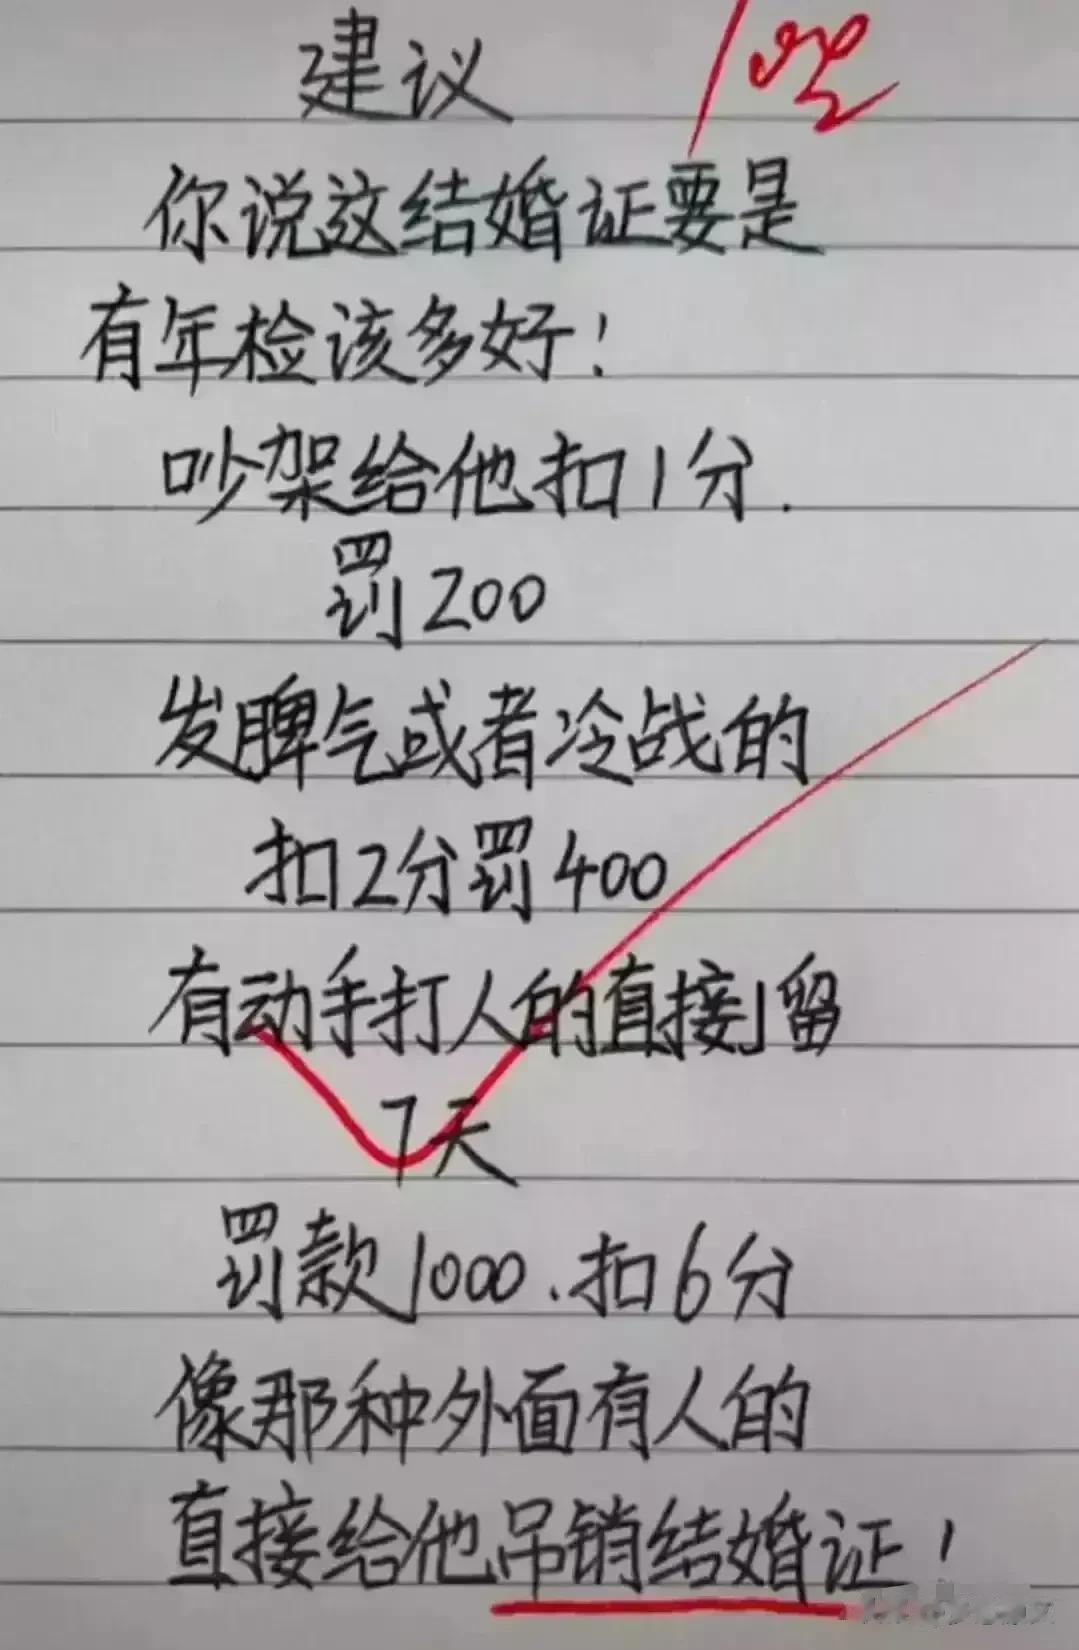 建议
你说这结婚证要是
有年检该多好！
吵架给他扣1分.
罚200
发脾气或者冷战的
扣2分罚400
有动手打人的直接留
7天
罚款1000.扣6分
像那种外面有人的
直接给他吊销结婚证！